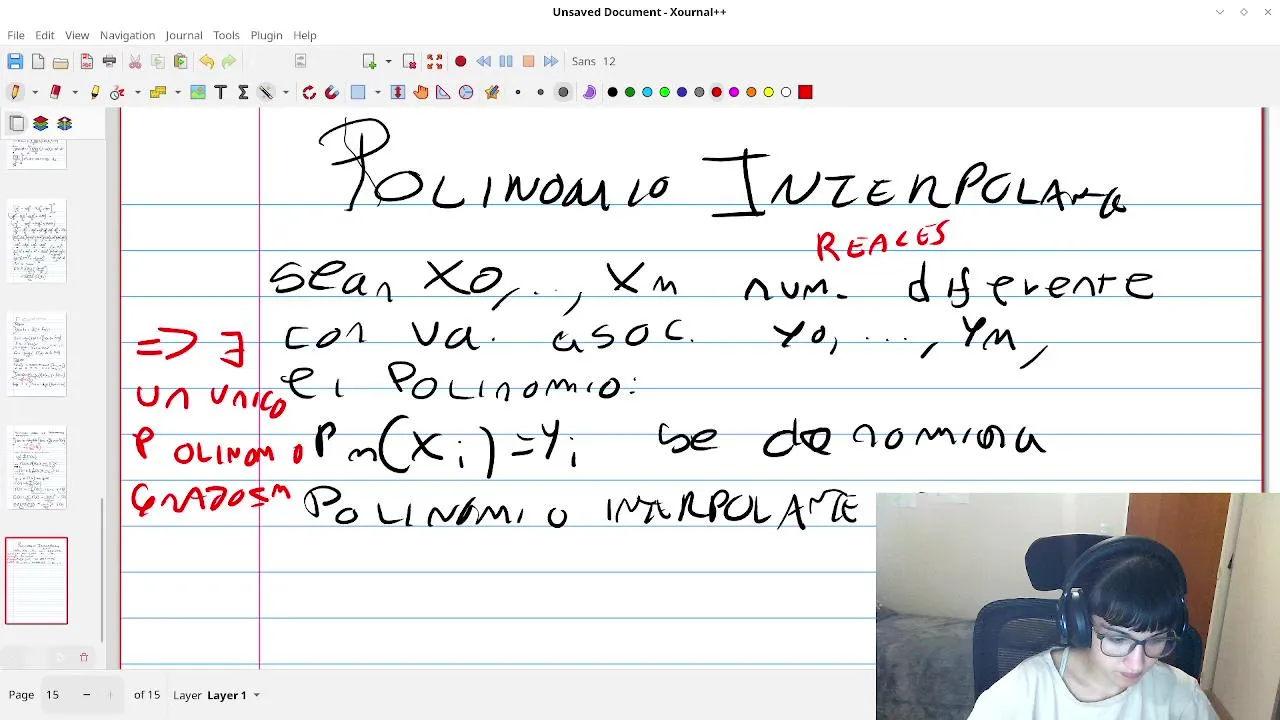 Unsaved Document - Xournal++
File Edit View Navigation Journal Tools Plugin Help
Sans 12
POLINOMIO INTERPOLANTE
REALES
sean X0, ..., Xm num. diferente
con va. asoc. Y0, ..., Ym,
el POLINOMIO:
Pm(Xi)=Yi se denomina
POLINOMIO INTERPOLANTE
=> ∃
UN UNICO
POLINOMIO
GRADO≤m
Page 15 of 15 Layer Layer 1